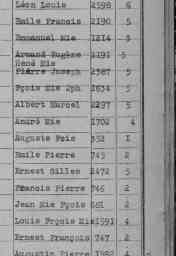 Léon Louis 2598 6
Emile Francis 2190 5
Emmanuel Mie 1214 3
Armand Eugène 1191 5
René Mie
Pierre Joseph 2387 5
Fçois Mie Jph 2634 5
Albert Marcel 2297 5
André Mie 1702 4
Auguste Fois 352 1
Emile Pierre 745 2
Ernest Gilles 2472 5
Francis Pierre 746 2
Jean Mie Fçois 661 2
Louis Frçois Mie 1591 4
Ernest François 747 2
Augustin Pierre 1982 4